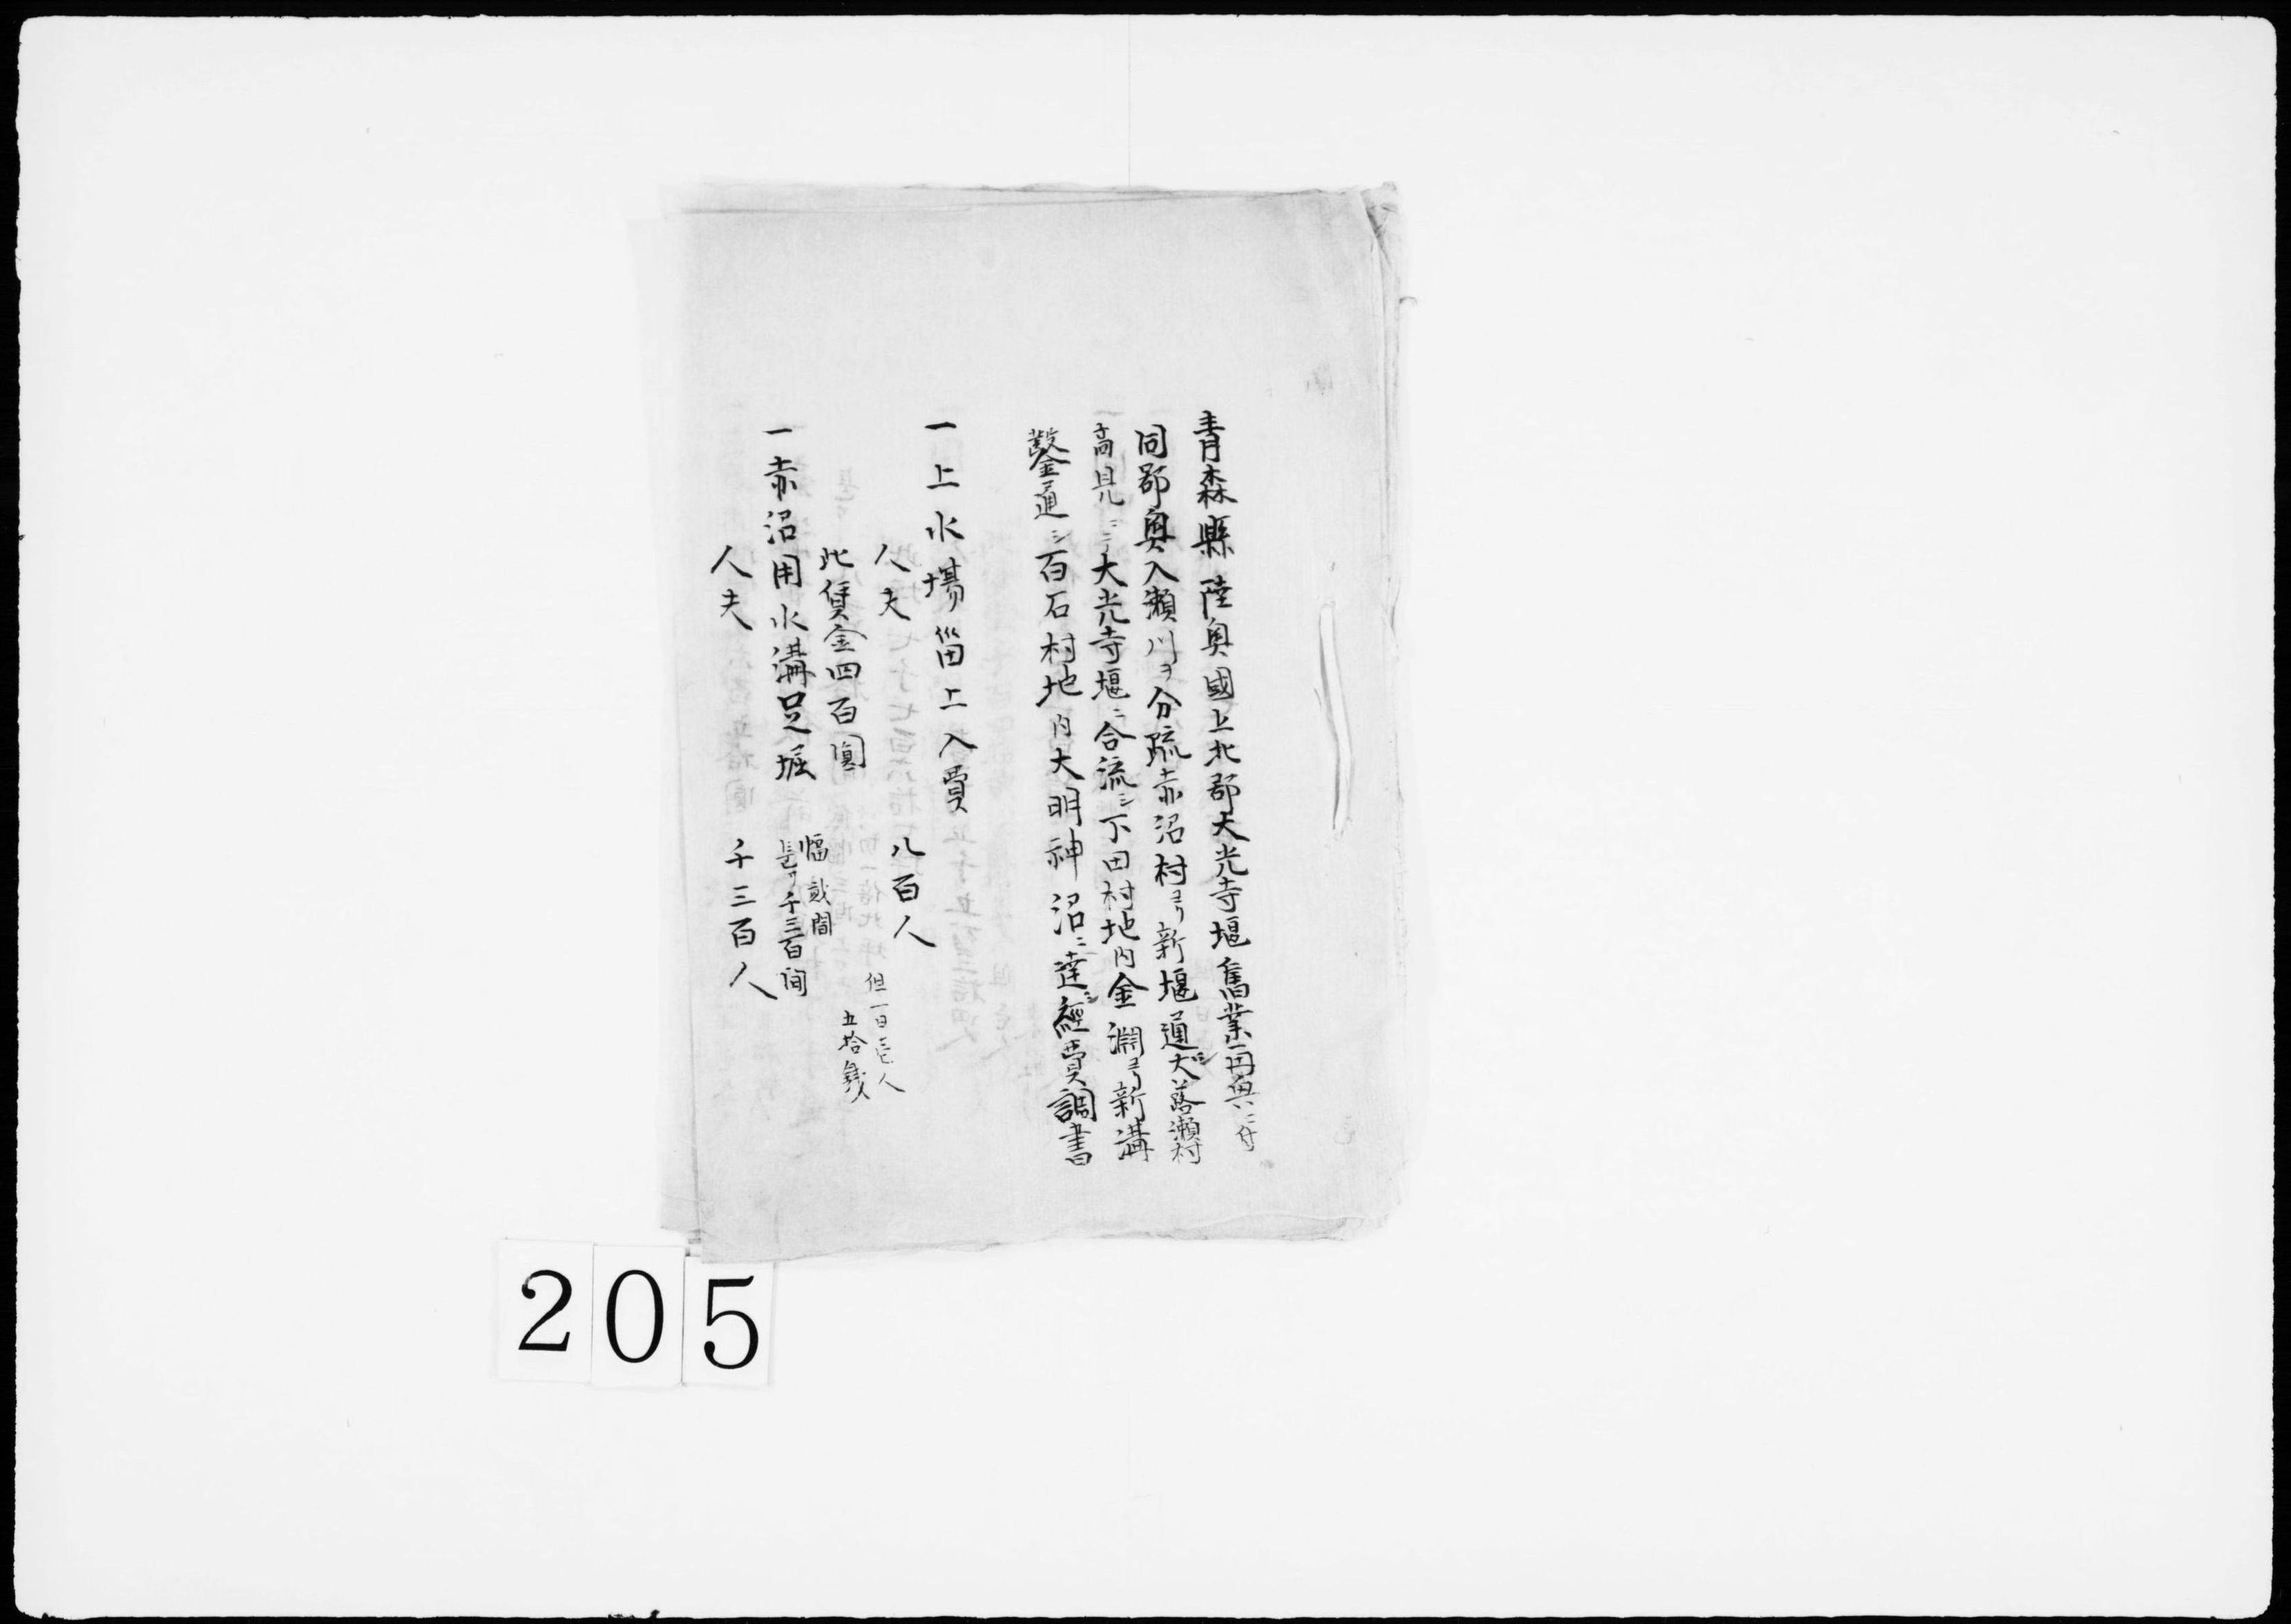 青森縣陸奥國上北郡大光寺堰舊業再興ニ付
同郡奥入瀬川ヲ分疏赤沼村ヨリ新堰通シ大落瀬村
高見ニテ大光寺堰ニ合流シ下田村地内金淵ヨリ新溝
鑿通シ百石村地内大明神沼ニ達シ經費調書
一上水場畄上入費
人夫 八百人 但一日壱人
五拾錢
此賃金四百圓
一赤沼用水溝足堀 幅貮間
長サ千三百間
人夫 千三百人
205